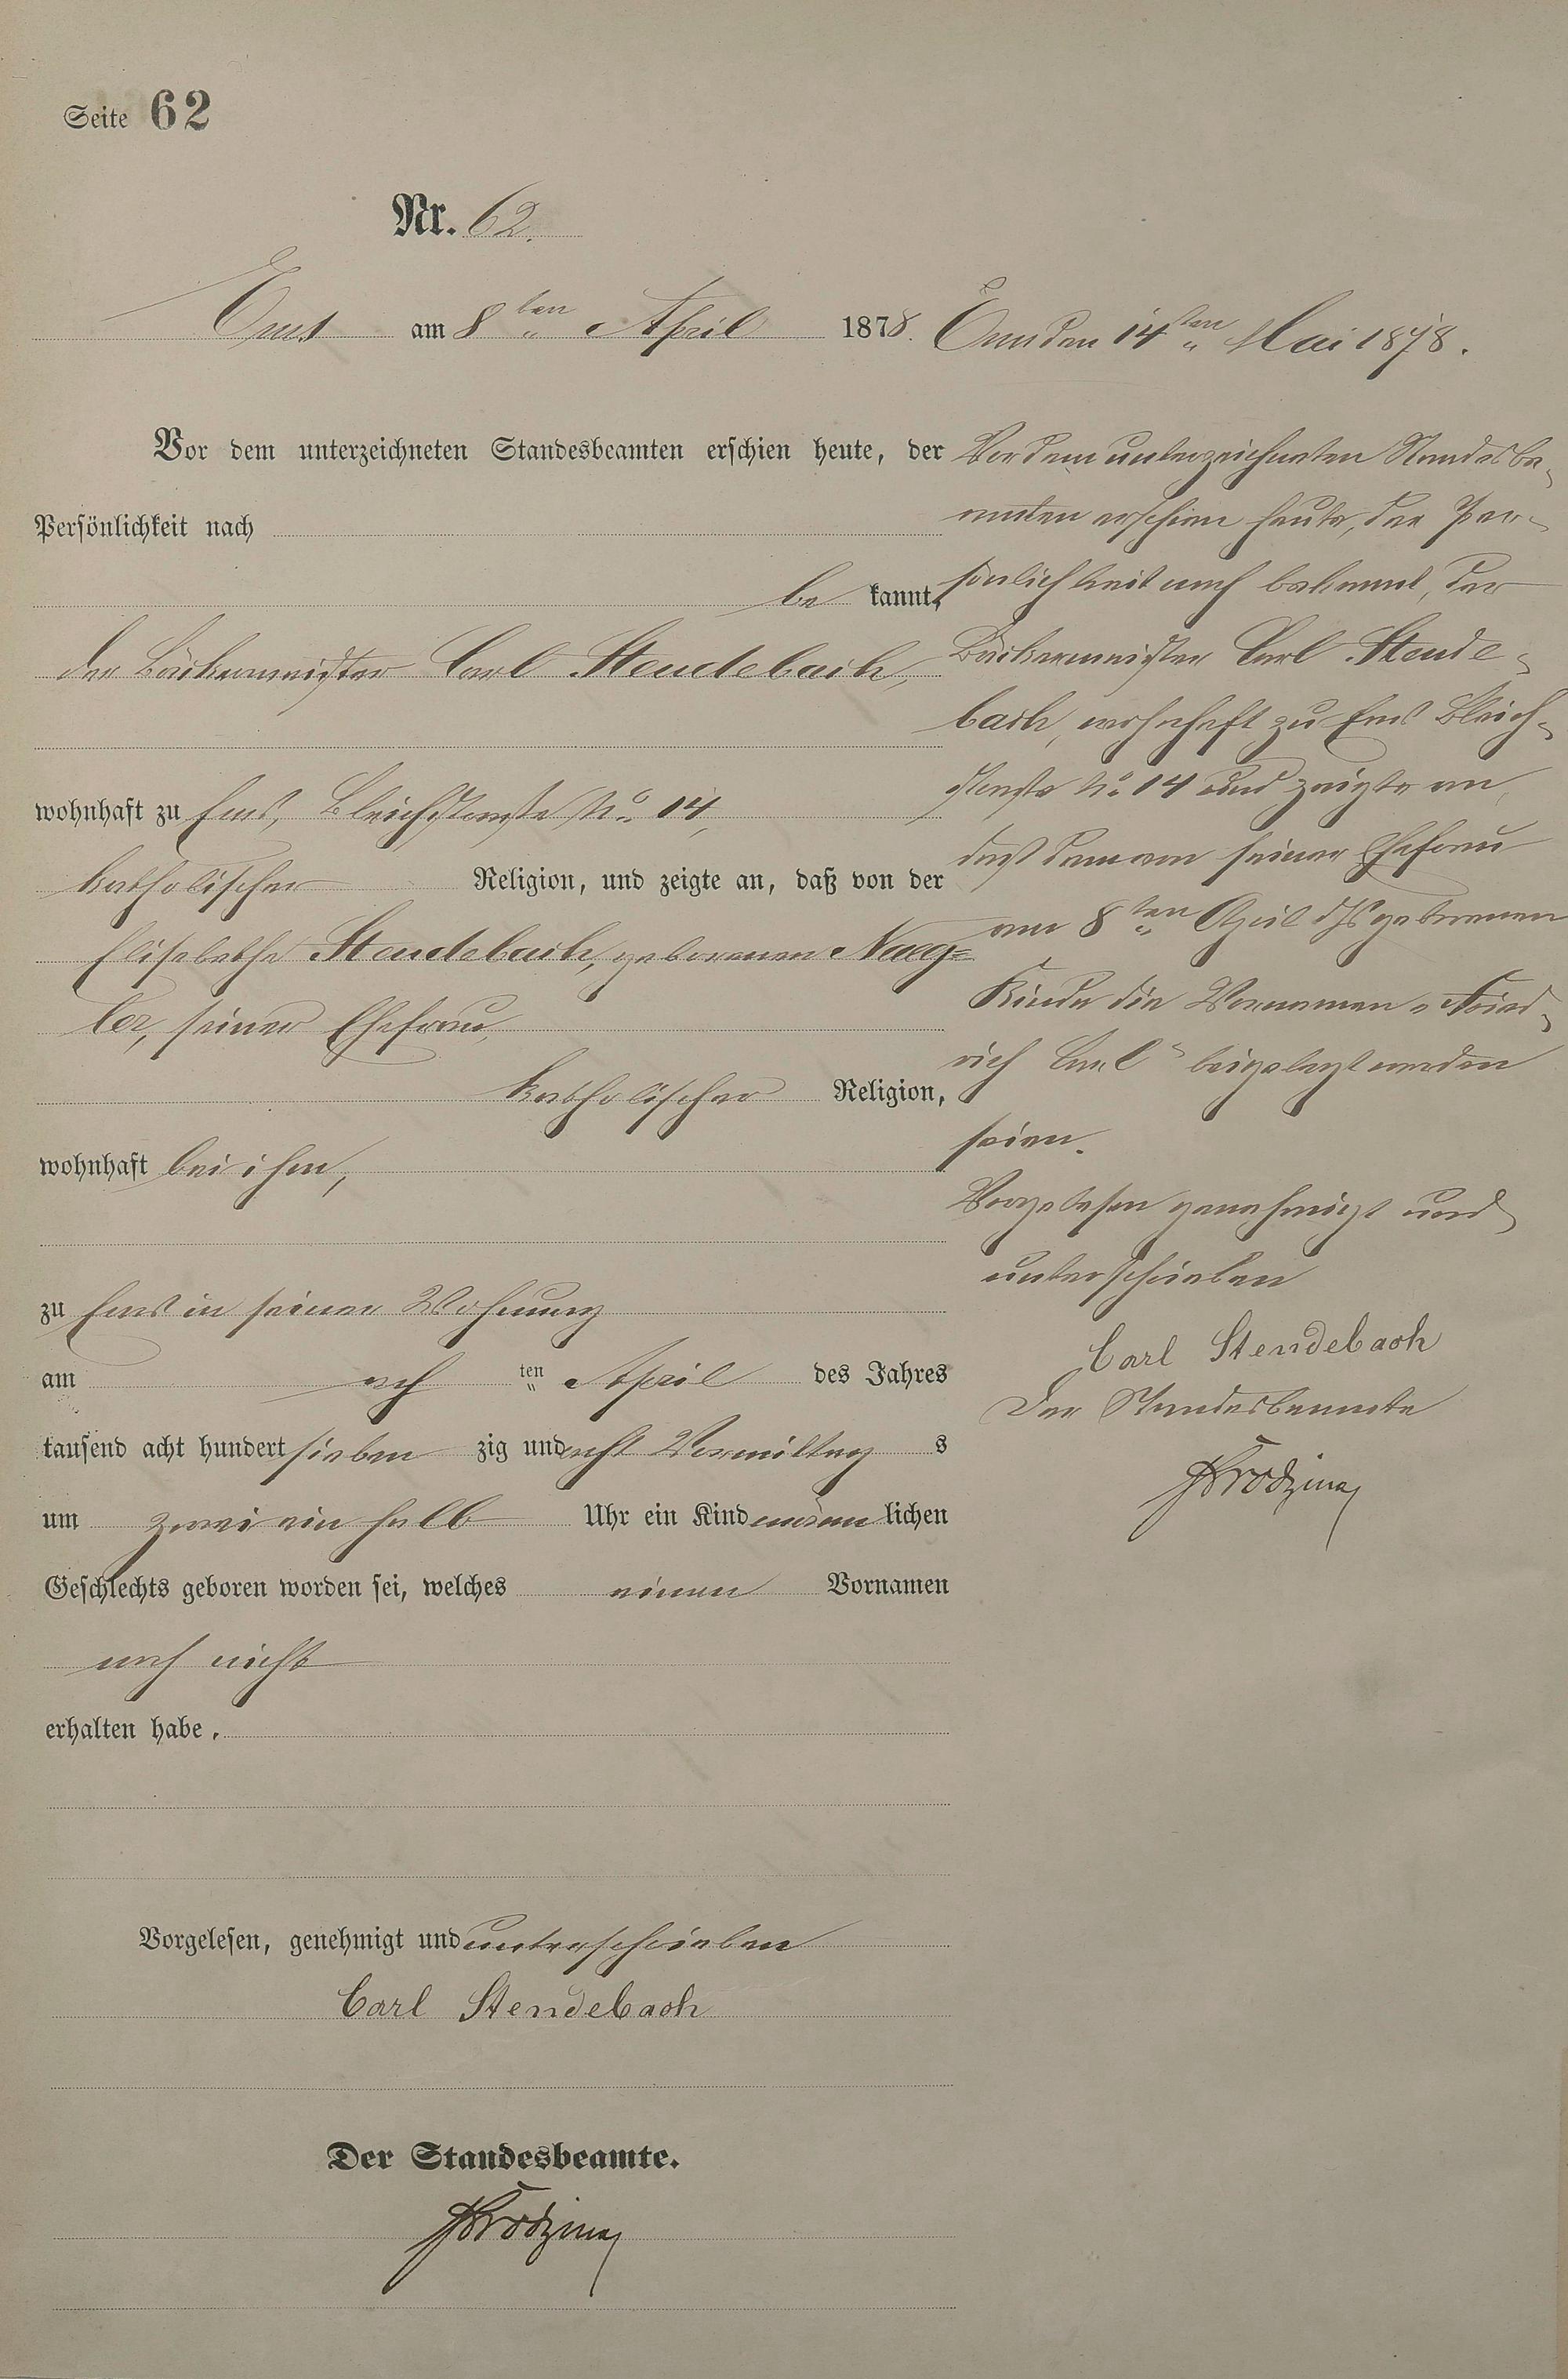 Seite 62
Nr. 62.
Ems am 8ten April 1878.
Vor dem unterzeichneten Standesbeamten erschien heute, der
Persönlichkeit nach
be kannt,
der Bäckermeister Carl Stendebach,
wohnhaft zu Ems, Bleichstraße No. 14,
katholischer Religion, und zeigte an, daß von der
Elisabethe Stendebach, geborenen Nag=
ler, seiner Ehefrau,
katholischer Religion,
wohnhaft bei ihm,
zu Ems in seiner Wohnung
am ach ten April des Jahres
tausend acht hundert sieben zig und acht Vormittag s
um zwei ein halb Uhr ein Kind männ lichen
Geschlechts geboren worden sei, welches einen Vornamen
noch nicht
erhalten habe.
Vorgelesen, genehmigt und unterschrieben
Carl Stendebach
Der Standesbeamte.
Ems den 14ten Mai 1878.
Vor dem unterzeichneten Standesbe-
amten erschien heute, der Per-
sönlichkeit nach bekannt, der
Bäckermeister Carl Stende-
bach, wohnhaft zu Ems Bleich-
straße No. 14 und zeigte an,
daß dem von seiner Ehefrau
am 8ten April djs geborenen
Kinde die Vornamen „Fried-
rich Carl“ beigelegt worden
seien.
Vorgelesen genehmigt und
unterschrieben
Carl Stendebach
Der Standesbeamte